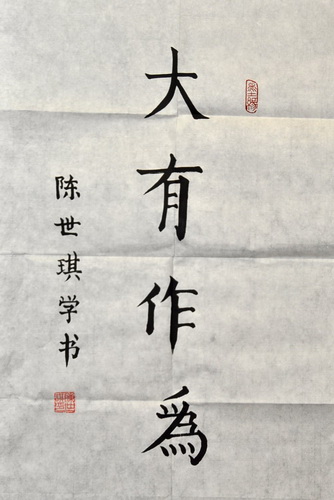 大有作為
陈世琪学书